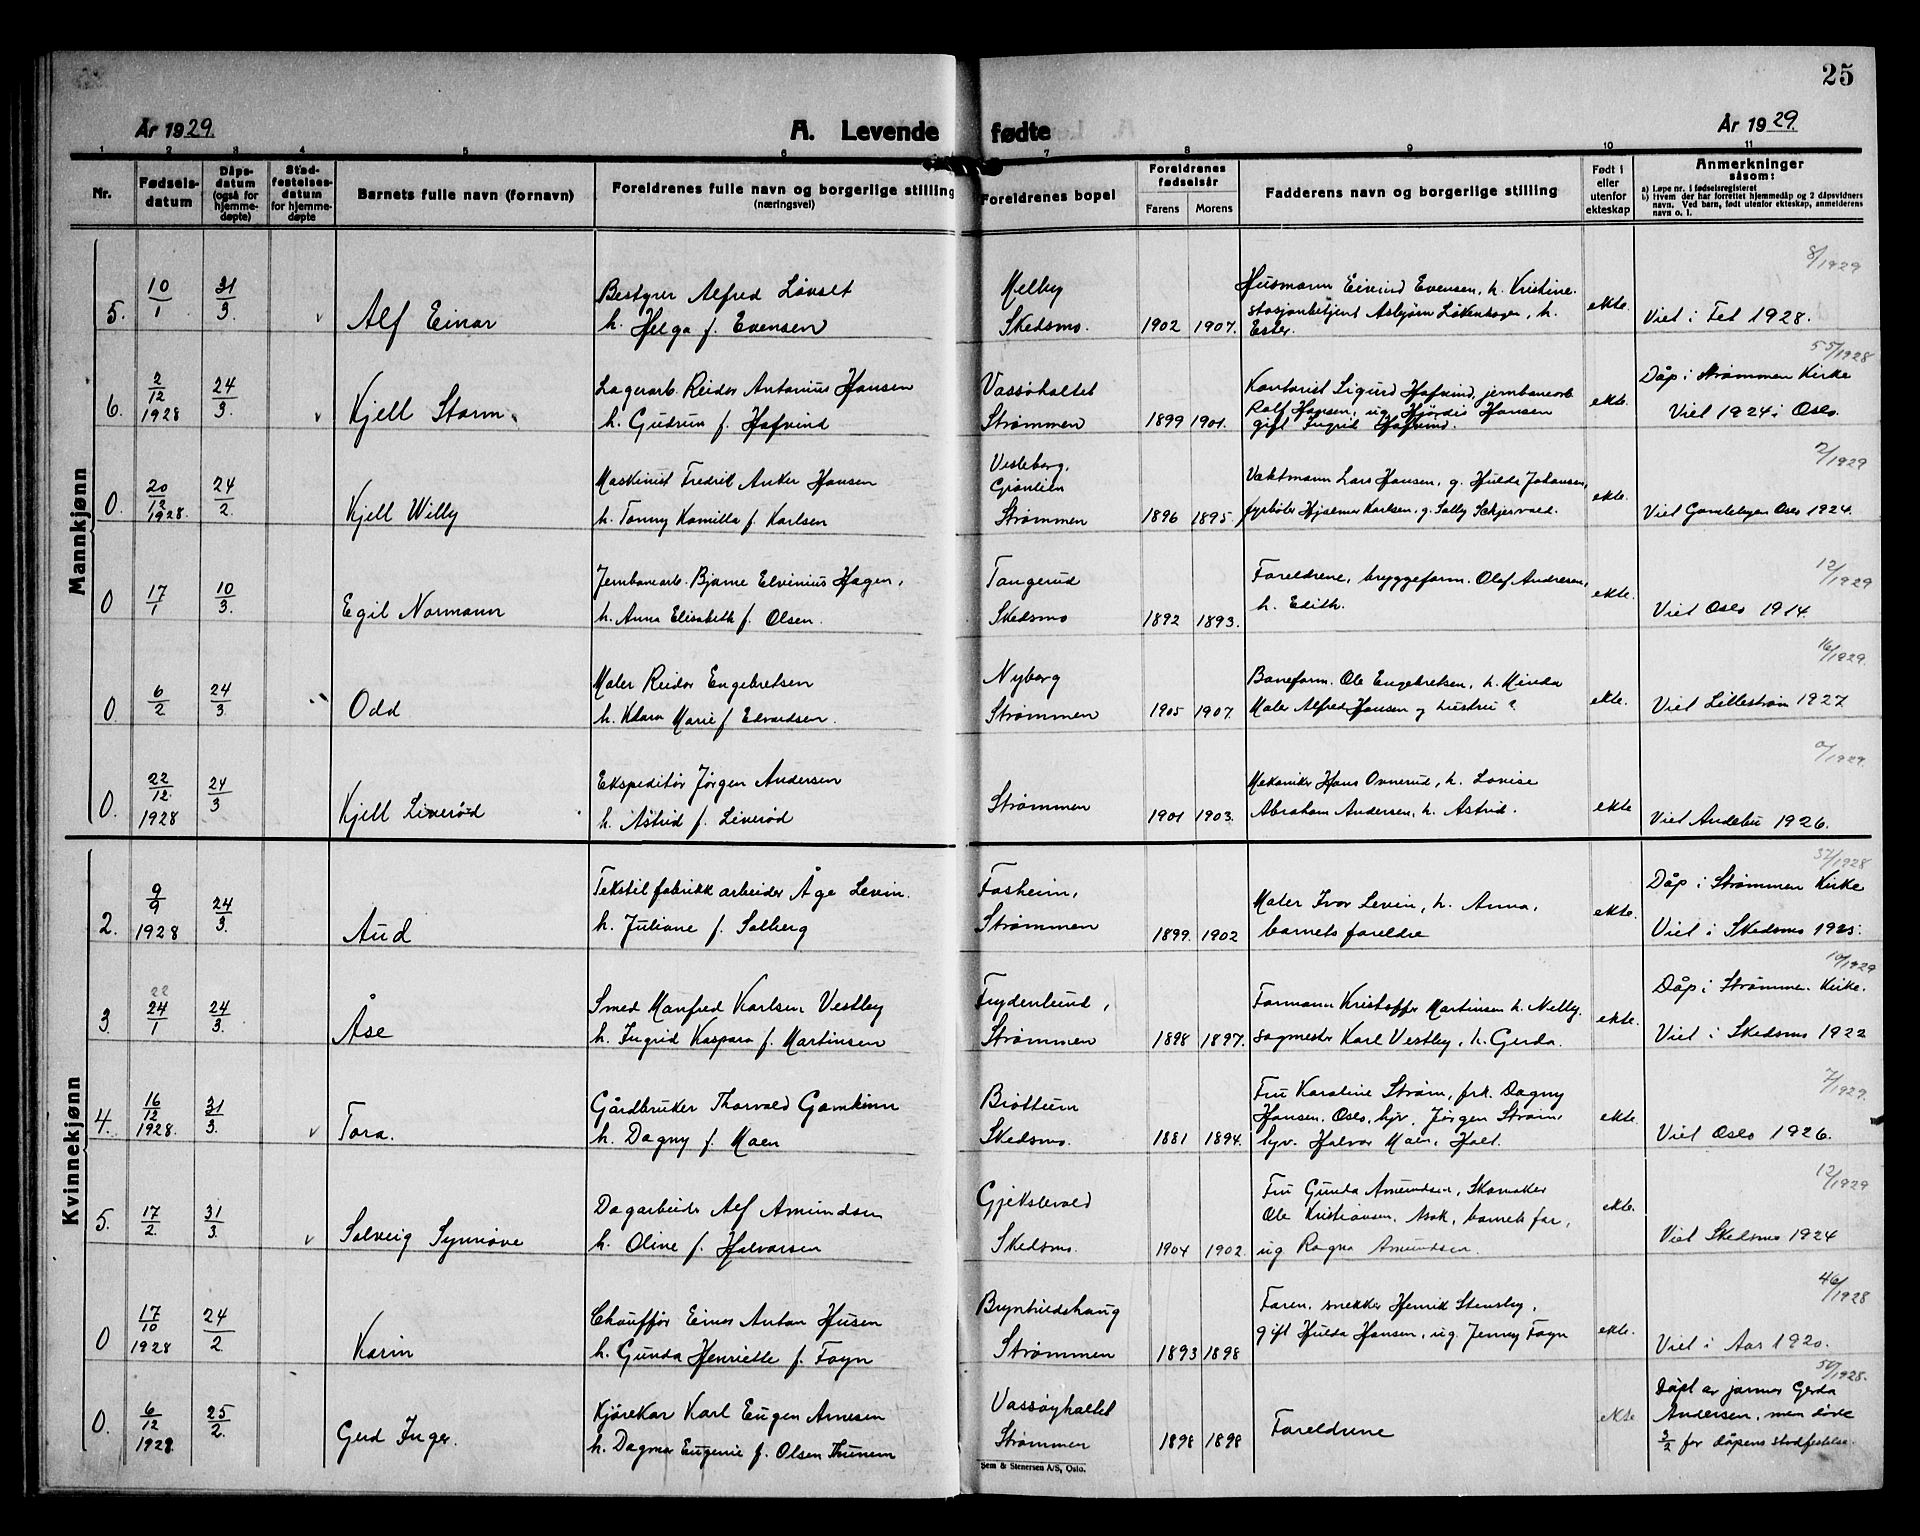 25
År 1929.
A. Levende fødte
År 1929.
1 2 3 4 5 6 7 8 9 10 11
Nr.
Fødsels-
datum
Dåps-
datum
(også for
hjemme-
døpte)
Stad-
festelses-
datum
for hjemme-
døpte
Barnets fulle navn (fornavn)
Foreldrenes fulle navn og borgerlige stilling
(næringsvei)
Foreldrenes bopel
Foreldrenes
fødselsår
Farens
Morens
Fadderens navn og borgerlige stilling
Født i
eller
utenfor
ekteskap
Anmerkninger
såsom:
a) Løpe nr. i fødselsregisteret
b) Hvem der har forrettet hjemmedåp og 2 dåpsvidners
navn. Ved barn, født utenfor ekteskap, anmelderens
navn o. l.
Mannkjønn
5. 10/1 31/3 v Alf Einar
Bestyrer Alfred Løvset
h. Helga f. Evensen
Melby
Skedsmo. 1902 1907.
Husmann Eivind Evensen, h. Kristine.
stasjonbetjent Asbjørn Løkenhagen, h.
Ester.
ekte.
8/1929
Viet i Fet 1928.
6. 2/12 1928 24/3. v Kjell Storm.
Lagerarb. Reidar Antonius Hansen
h. Gudrun f. Hafvind
Vassøholtet
Strømmen 1899 1901.
Kontorist Sigurd Hafvind, jernbanearb
Ralf Hansen, ug. Hjørdis Hansen
gift Ingrid Hafvind.
ekte.
55/1928
Dåp i Strømmen Kirke
Viet 1924 i Oslo.
0. 20/12 1928. 24/2. Kjell Willy
Maskinist Fredrik Anker Hansen
h. Tonny Kamilla f. Karlsen
Vesleborg,
Grønlien
Strømmen 1896 1895.
Vaktmann Lars Hansen, g. Hulda Johansen,
fyrbøter Hjalmar Karlsen, g. Solly Skjervold.
ekte.
2/1929
Viet Gamlebyen Oslo 1924.
0 17/1 10/3. Egil Normann
Jernbanearb. Bjarne Elvinius Hagen,
h. Anna Elisabeth f. Olsen.
Tangerud
Skedsmo 1892 1893.
Foreldrene, bryggeform. Olaf Andresen,
h. Edith.
ekte.
12/1929
Viet Oslo 1914.
0. 6/2 24/3. Odd
Maler Reidar Engebretsen
h. Klara Marie f. Edvardsen.
Nyborg
Strømmen 1905 1907.
Baneform. Ole Engebretsen, h. Minda
Maler Alfred Hansen og hustru ?
ekte.
16/1929.
Viet Lillestrøm 1927
0. 22/12. 1928 24/3 Kjell Liverød
Ekspeditør Jørgen Andersen
h. Astrid f. Liverød
Strømmen 1901 1903.
Mekaniker Hans Ovnerud, h. Lovise
Abraham Andersen, h. Astrid.
ekte
0/1929.
Viet Andebu 1926.
Kvinnekjønn
2. 9/9 1928 24/3. Aud
Tekstilfabrikkarbeider Åge Levin.
h. Juliane f. Solberg
Fosheim,
Strømmen 1899. 1902
Maler Ivar Levin, h. Anna,
barnets foreldre
ekte.
37/1928
Dåp i Strømmen Kirke
Viet i Skedsmo 1925.
3. 22 24/1 24/3. Åse
Smed Manfred Karlsen Vestby
h. Ingrid Kaspara f. Martinsen
Frydenlund,
Strømmen 1898 1897.
Formann Kristoffer Martinsen h. Nelly.
sagmester Karl Vestby, h. Gerda.
ekte.
10/1929
Dåp i Strømmen Kirke.
Viet i Skedsmo 1922
4. 16/12 1928. 31/3. v Tora.
Gårdbruker Thorvald Gamkinn
h. Dagny f. Moen
Brøttum
Skedsmo. 1881 1894.
Fru Karoline Strøm, frk. Dagny
Hansen. Oslo, lyv. Jørgen Strøm,
lyv. Halvor Moen, Holt.
ekte
7/1929.
Viet Oslo 1926.
5. 17/2. 31/3. v Solveig Synnøve
Dagarbeider Alf Amundsen
h. Oline f. Halvorsen
Gjekslevold
Skedsmo. 1904 1902.
Fru Gunda Amundsen, Skomaker
Ole Kristiansen, Ask, barnets far,
ug Ragna Amundsen.
ekte.
12/1929
Viet Skedsmo 1924
0 17/10 1928 24/2. Karin
Chauffør Einar Anton Husen
h. Gunda Henriette f. Foyn
Brynhildshaug
Strømmen 1893 1898
Faren, snekker Henrik Stensby,
gift Hulda Hansen, ug. Jenny Foyn
ekte.
46/1928
Viet i Aas 1920.
0. 6/12 1928. 25/2. Gerd Inger.
Kjørekar Karl Eugen Arnesen
h. Dagmar Eugenie f. Olsen Thunem
Vassøyholtet
Strømmen 1898 1898
Foreldrene
ekte
50/1928.
Døpt av jormor Gerda
Andersen, men døde
3/2 før dåpens stadfestelse.
Sem & Stenersen A/S, Oslo.